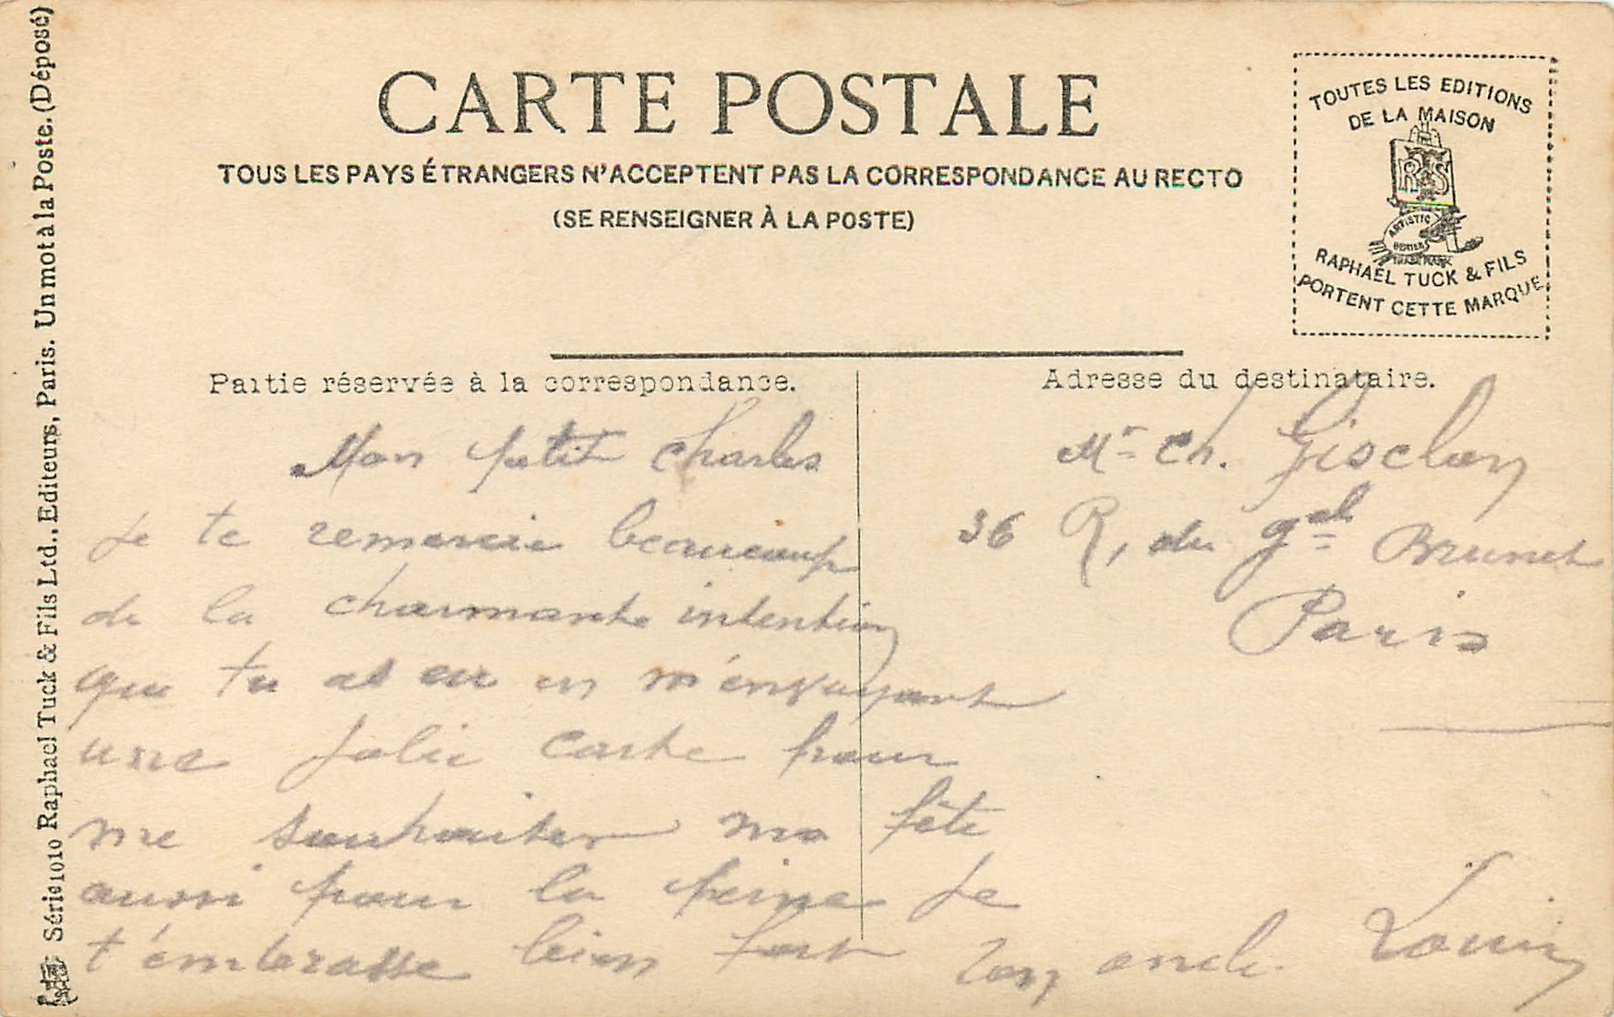 CARTE POSTALE
TOUS LES PAYS ÉTRANGERS N'ACCEPTENT PAS LA CORRESPONDANCE AU RECTO
(SE RENSEIGNER À LA POSTE)
TOUTES LES EDITIONS
DE LA MAISON
R T & S
ARTISTIC
SERIES
TRADE MARK
RAPHAËL TUCK & FILS
PORTENT CETTE MARQUE
Série 1010 Raphael Tuck & Fils Ltd., Editeurs, Paris. Un mot à la Poste. (Déposé)
Partie réservée à la correspondance.
Mon petit Charles
Je te remercie beaucoup
de la charmante intention
que tu as eu en m'envoyant
une jolie carte pour
me souhaiter ma fête
aussi pour la peine je
t'embrasse bien fort
Ton oncle Louis
Adresse du destinataire.
Mr Ch. Gisclon
36 R, du Gal Brunet
Paris